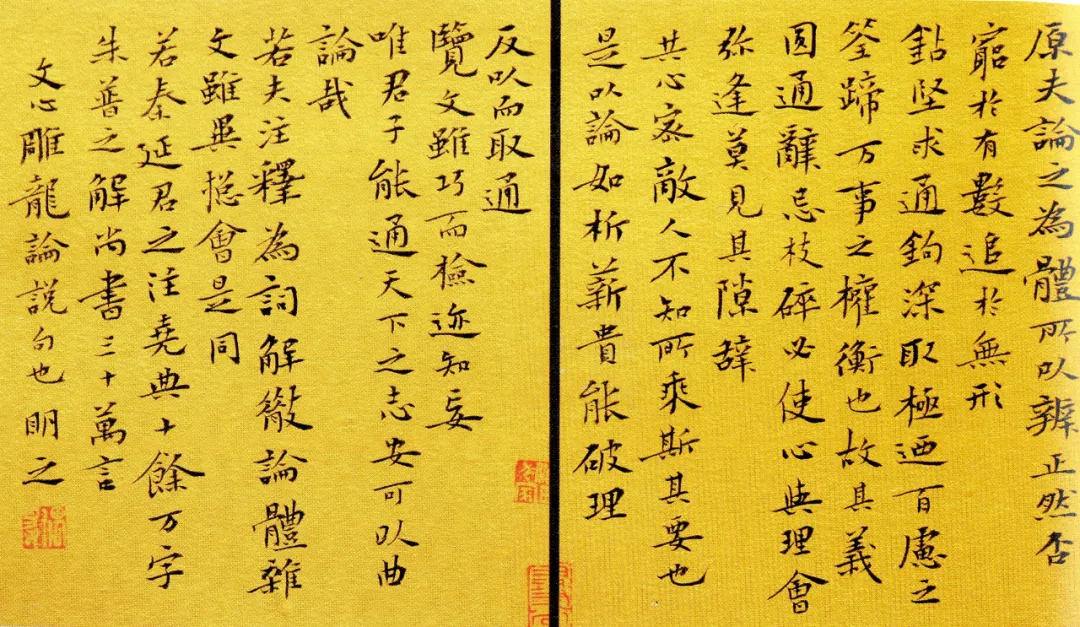 原夫論之為體所以辨正然否
窮於有數追於無形
鉆堅求通鉤深取極迺百慮之
筌蹄万事之權衡也故其義
圓通辭忌枝碎必使心與理會
弥逢莫見其隙辭
共心密敵人不知所乘斯其要也
是以論如析薪貴能破理
反以而取通
覽文雖巧而檢迹知妄
唯君子能通天下之志安可以曲
論哉
若夫注釋為詞解散論體雜
文雖異揔會是同
若秦延君之注堯典十餘万字
朱普之解尚書三十萬言
文心雕龍論説句也明之